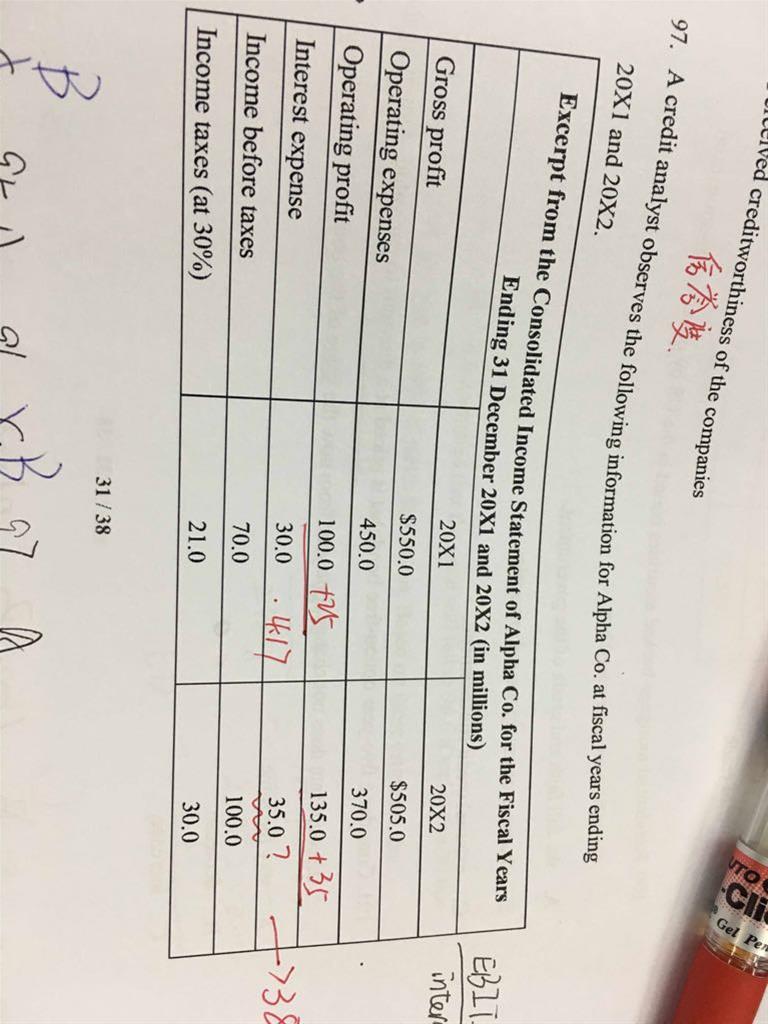 creditworthiness of the companies
信誉度.
97. A credit analyst observes the following information for Alpha Co. at fiscal years ending
20X1 and 20X2.
Excerpt from the Consolidated Income Statement of Alpha Co. for the Fiscal Years
Ending 31 December 20X1 and 20X2 (in millions)
20X1 20X2
Gross profit $550.0 $505.0
Operating expenses 450.0 370.0
Operating profit 100.0 +25 135.0 +35
Interest expense 30.0 .417 35.0 ? →38
Income before taxes 70.0 100.0
Income taxes (at 30%) 21.0 30.0
EBIT
inter
31 / 38
B
B
Gel Pen